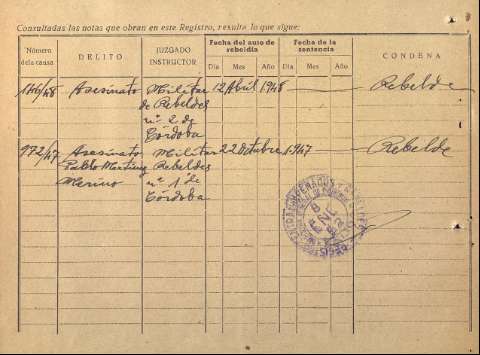 Consultadas las notas que obran en este Registro, resulta lo que sigue:
Número de la causa
DELITO
JUZGADO INSTRUCTOR
Fecha del auto de rebeldía
Día Mes Año
Fecha de la sentencia
Día Mes Año
CONDENA
146/48 Asesinato Militar 12 Abril 1948 Rebelde
de Rebeldes
nº 2 de
Córdoba
972/47 Asesinato Militar 22 Octubre 1947 Rebelde
Pablo Martinez Rebeldes
Merino nº 1 de
Córdoba